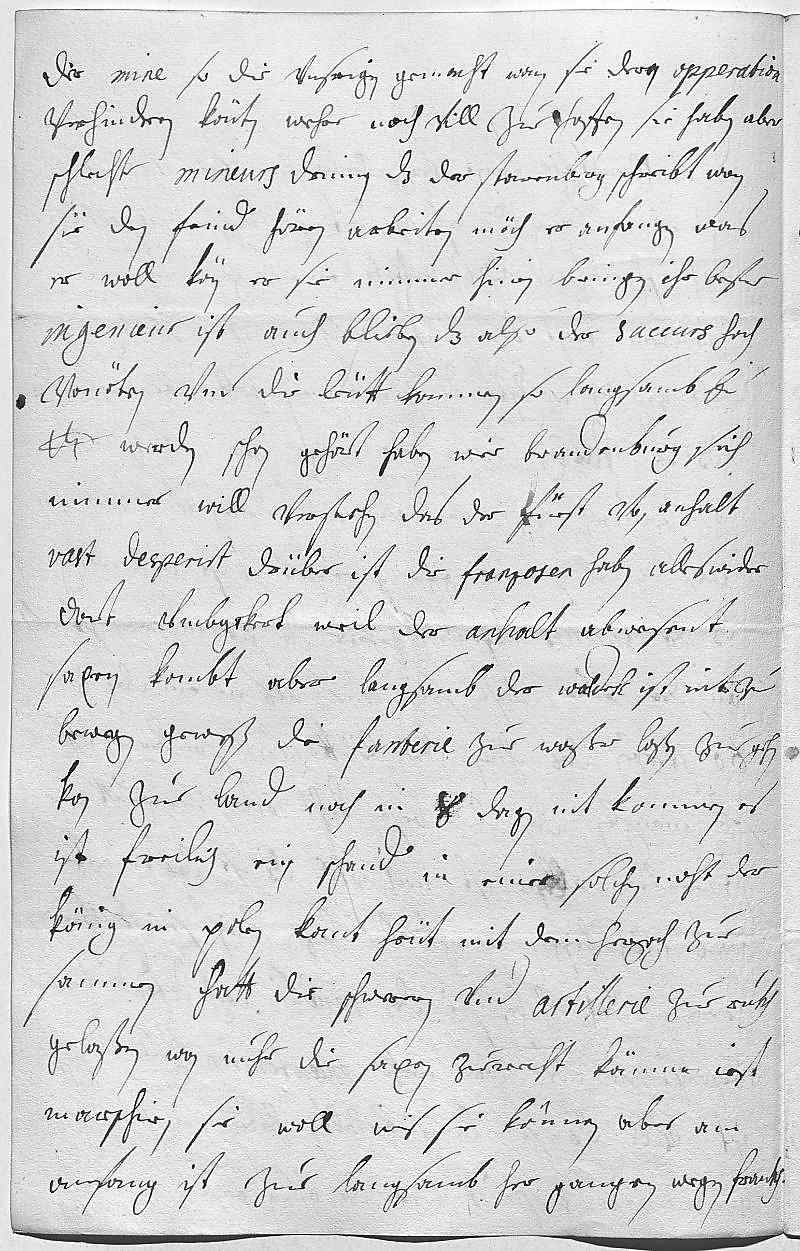 die mine so die unsrigen gemacht wan sie deren opperation
verhindern könten wehre noch vill zu hoffen sie haben aber
schlechte mineurs drinnen dz der starenberg schreibt wan
sie den feind hören arbeiten möch er anfangen was
er woll kön er sie nimmer hinein bringen ihr bester
ingenieur ist auch bliben dz also der succurs hoch
vonöten und die leütt kommen so langsamb
werden schon gehört haben wie brandenburg sich
nimmer will verstehen das der fürst von anhalt
vast desperirt drüber ist die franzosen haben alles wider
dort umbgekert weil der anhalt abwesent
saxen kombt aber langsamb der waldek ist nit zu
bewegen gewest die fanterie zur wasser lassen zu gehen
kan zur land noch in 8 dagen nit kommen es
ist freilig ein schand in einer solchen noht der
könig in polen komt heüt mit dem herzoch zu
sammen hatt die schweren und artillerie zu rukh
gelassen wan nuhr die saxen zurecht kämme iezt
marschiren sie woll wie sie können aber am
anfang ist zu langsamb her gangen wegen